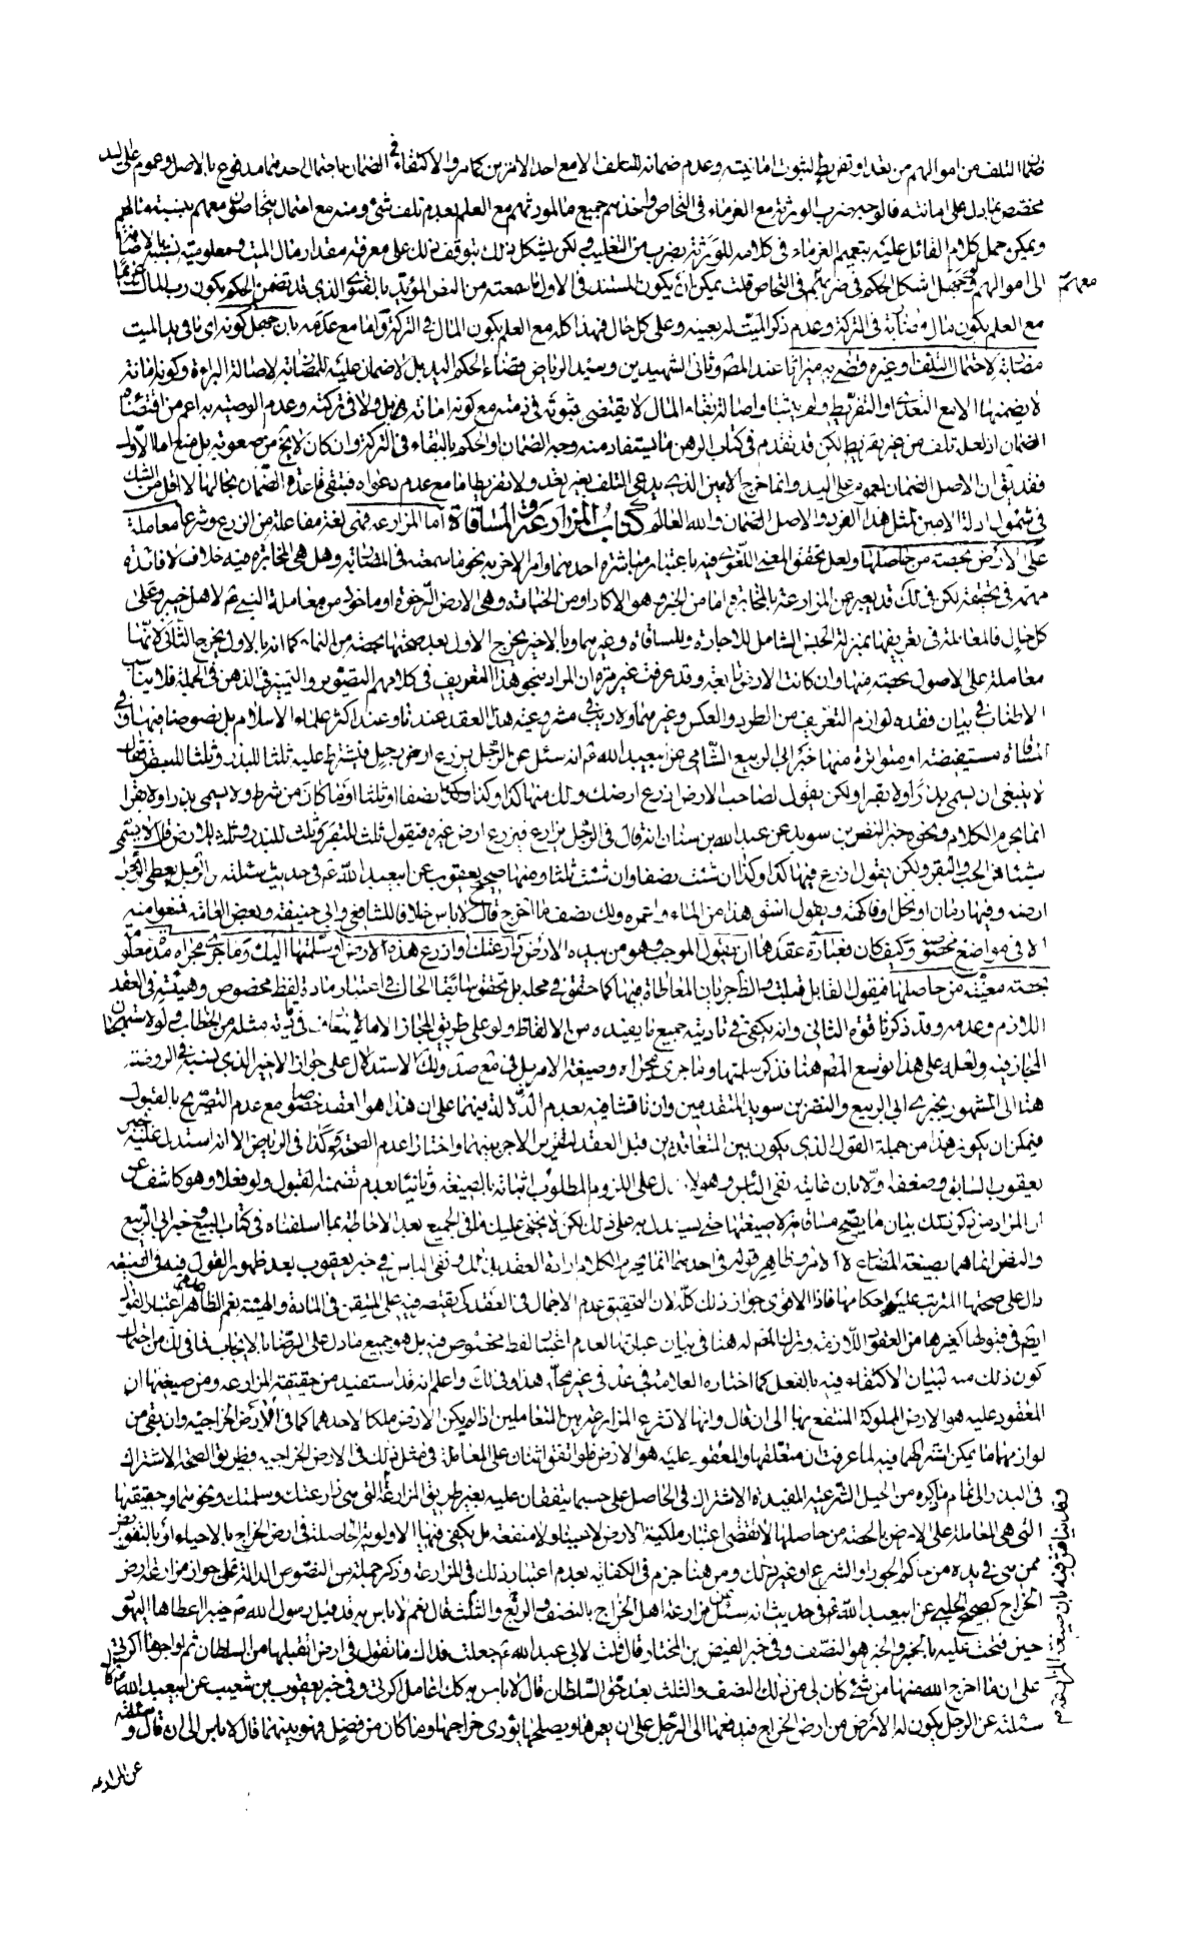 ضمان التلف من اموالهم من تعد او تفريط لثبوت امانيته وعدم ضمانه للتلف الا مع احد الامرين كما مر والاكتفاء في الضمان باحتمال احدهما مدفوع بالاصل وعموم على اليد
مختص بما دل على امانته فالوجه ضرب الورثة مع الغرماء في التحاص واخذهم جميع مال مورثهم مع العلم بعدم تلف شئ منه مع احتمال يتحاصون معهم بنسبة مالهم
ويمكن حمل كلام القائل عليه بتعميم الغرماء في كلامه للورثة بضرب من التغليب لكن يشكل ذلك بتوقف ذلك على معرفة مقدار مال الميت ومعلومية نسبته
الى اموالهم فمع جهل اشكل الحكم في ضربهم في التحاص قلت يمكن ان يكون المستند في الاول ما سمعته من النص المؤيد بالفتوى الذي قد تضمن الحكم بكون رب المال
معهم
مع العلم بكون مال مضاربة في التركة وعدم ذكر الميت له بعينه وعلى كل حال فهذا كله مع العلم بكون المال في التركة واما مع عدمه بان جهل كونه اي ما في يد الميت
مضاربة لاحتمال التلف وغيره قضى به ميراثا عند المصنف وثاني الشهيدين وسيد الرياض قضاء لحكم اليد بل لا ضمان عليه للمضاربة لاصالة البراءة وكونه امانة
لا يضمنها الا مع التعدي والتفريط ولم يثبتا واصالة بقاء المال لا يقتضي ثبوته في ذمته مع كونه امانة بل ولا في تركته وعدم الوصية به اعم من اقتضاء
الضمان اذ لعله تلف من غير تفريط لكن قد تقدم في كتاب الرهن ما يستفاد منه وجه الضمان او الحكم بالبقاء في التركة وان كان لا يخ من صعوبة بل منع اما الاول
فقد يق ان الاصل الضمان لعموم على اليد وانما خرج الامين الذي يدعي التلف بغير تعد ولا تفريط اما مع عدم دعواه فتبقى قاعدة الضمان بحالها لا اقل من الشك
في شمول ادلة الامين لمثل هذا الفرد والاصل الضمان والله العالم كتاب المزارعة والمساقاة اما المزارعة فهي لغة مفاعلة من الزرع وشرعا معاملة
على الارض بحصة من حاصلها ولعل تحقق المعنى اللغوي فيه باعتبار مباشرة احدهما وامر الاخر به نحو ما سمعته في المضاربة وهل هي المخابرة فيه خلاف لا فائدة
مهمة في تحقيقه لكن في لك قد يعبر عن المزارعة بالمخابرة اما من الخبير وهو الاكار او من الخبارة وهي الارض الرخوة او ماخوذ من معاملة النبي ص لاهل خيبر وعلى
كل حال فالمعاملة في تعريفها بمنزلة الجنس الشامل للاجارة والمساقاة وغيرهما وبالاخير يخرج الاول بعد صحتها بحصة من النماء كما انه بالاول يخرج الثاني لانها
معاملة على الاصول بحصة منها وان كانت الارض تابعة وقد عرفت غير مرة ان المراد بنحو هذا التعريف في كلامهم التصوير والتمييز في الذهن في الجملة فلا يناسب
الاطناب في بيان فقده لوازم التعريف من الطرد والعكس وغيرهما ولا ريب في مشروعية هذا العقد عندنا وعند اكثر علماء الاسلام بل نصوصنا فيها وفي
المساقاة مستفيضة او متواترة منها خبر ابي الربيع الشامي عن ابيعبد الله ع انه سئل عن الرجل يزرع ارض رجل فيشترط عليه ثلثا للبذر وثلثا للبقر فقال
لا ينبغي ان يسمى بذرا ولا بقرا ولكن يقول لصاحب الارض ازرع ارضك ولك منها كذا وكذا نصفا او ثلثا او ما كان من شرط ولا يسمى بذرا ولا بقرا
انما يحرم الكلام ونحوه خبر النضر بن سويد عن عبد الله بن سنان انه قال في الرجل يزارع فيزرع ارض غيره فيقول ثلث للبقر وثلث للبذر وثلث للارض قال لا يسمى
شيئا من الحب والبقر ولكن يقول ازرع فيها كذا وكذا ان شئت نصفا وان شئت ثلثا ومنها صحيح يعقوب عن ابيعبد الله ع في حديث سئلته عن الرجل يعطي الرجل
ارضه وفيها رمان او نخل او فاكهة ويقول اسق هذا من الماء واعمره ولك نصف ما اخرج قال لا باس خلافا للشافعي وابي حنيفة وبعض العامة فمنعوا منه
الا في مواضع مخصوصة وكيف كان فعبارة عقدها ان يقول الموجب وهو من بيده الارض زارعتك او ازرع هذه الارض او سلمتها اليك وما جرى مجراه مدة معلومة
بحصة معينة من حاصلها فيقول القابل قبلت والظ جريان المعاطاة فيها كما حقق في محله بل تحقق سابقا الحال في اعتبار مادة لفظ مخصوص وهيئته في العقد
اللازم وعدمه وقد ذكرنا قوة الثاني وانه يكفي في تاديته جميع ما يفيده من الالفاظ ولو على طريق المجاز الا ما لم يتعارف في تادية مثله من الخطاب ولو لاستهجان
المجاز فيه ولعله على هذا توسع المص هنا فذكر سلمتها وما جرى مجراه وصيغة الامر بل في مع صد ولك الاستدلال على جواز الاخير الذي نسبه في الروضة
هنا الى المشهور بخبري ابي الربيع والنضر بن سويد المتقدمين وان ناقشا فيه بعدم الدلالة فيهما على ان هذا هو العقد خصوصا مع عدم التصريح بالقبول
فيمكن ان يكونه هذا من جملة القول الذي يكون بين المتعاقدين قبل العقد لتقرير الامر بينهما واختارا عدم الصحة وكذا في الرياض الا انه استدل عليه بخبر
يعقوب السابق وضعفه اولا بان غايته نفي الباس وهو لا يدل على اللزوم المطلوب اثباته بالصيغة وثانيا بعدم تضمنه القبول ولو فعلا وهو كاشف عن
ان المراد من ذكر ذلك بيان ما يصح مساقاته لا صيغتها حتى يستدل به على ذلك لكن لا يخفى عليك ما في الجميع بعد الاحاطة بما اسلفناه في كتاب البيع وخبر ابي الربيع
والنضر انما هما بصيغة المضارع لا الامر وظاهر قوله في احدهما انما يحرم الكلام ارادة العقد بذلك ونفي الباس في خبر يعقوب بعد ظهور القول فيه في الصيغة
دال على صحتها المترتب عليها احكامها فاذا الاقوى جواز ذلك كله لان التحقيق عدم الاجمال في العقد كي يقتصر فيه على المتيقن في المادة والهيئة نعم الظاهر اعتبار القول
ايضا في قبولها كغيرها من العقود اللازمة وترك المص له هنا في بيان عبارتها لعدم اعتبار لفظ مخصوص فيه بل هو جميع ما دل على الرضا بالايجاب فما في لك من احتمال
كون ذلك منه لبيان الاكتفاء فيه بالفعل كما اختاره العلامة في عد في غير محله هذا وفي لك واعلم انه قد استفيد من حقيقة المزارعة ومن صيغتها ان
المعقود عليه هو الارض المملوكة المنتفع بها الى ان قال وانها لا تشرع المزارعة بين المتعاملين اذا لم يكن الارض ملكا لاحدهما كما في الارض الخراجية وان بقي من
لوازمها ما يمكن اشتراكهما فيه لما عرفت ان متعلقها والمعقود عليه هو الارض فلو اتفق اثنان على المعاملة في مثل ذلك في الارض الخراجية فطريق الصحة الاشتراك
في البذر الى تمام ما ذكره من الحيل الشرعية المفيدة للاشتراك في الحاصل على حسب ما يتفقان عليه بغير طريق المزارعة التي هي زارعتك وسلمتك ونحوهما وحقيقتها
التي هي المعاملة على الارض بالحصة من حاصلها لا تقتضي اعتبار ملكية الارض لا عينا ولا منفعة بل يكفي فيها الاولوية الحاصلة في ارض الخراج بالاحياء او بالتفويض
ممن هي في يده من حاكم الجور او الشرع او غير ذلك ومن هنا جزم في الكفاية بعدم اعتبار ذلك في المزارعة وذكر جملة من النصوص الدالة على جواز مزارعة ارض
الخراج كصحيح الحلبي عن ابيعبد الله ع في حديث انه سئل عن مزارعة اهل الخراج بالنصف والربع والثلث قال نعم لا باس به قد قبل رسول الله ص خيبر اعطاها اليهود
حين فتحت عليه بالخبر والخبر هو النصف وفي خبر الفيض بن المختار قال قلت لابي عبد الله ع جعلت فداك ما تقول في ارض اتقبلها من السلطان ثم اواجرها اكرتي
على ان ما اخرج الله منها من شئ كان لي من ذلك النصف والثلث بعد حق السلطان قال لا باس به كك اعامل اكرتي وفي خبر يعقوب بن شعيب عن ابيعبد الله ع
سئلته عن الرجل يكون له الارض من ارض الخراج فيدفعها الى الرجل على ان يعمرها ويصلحها يؤدي خراجها وما كان من فضل فهو بينهما قال لا باس الى ان قال وسئلته
عن المزارعة